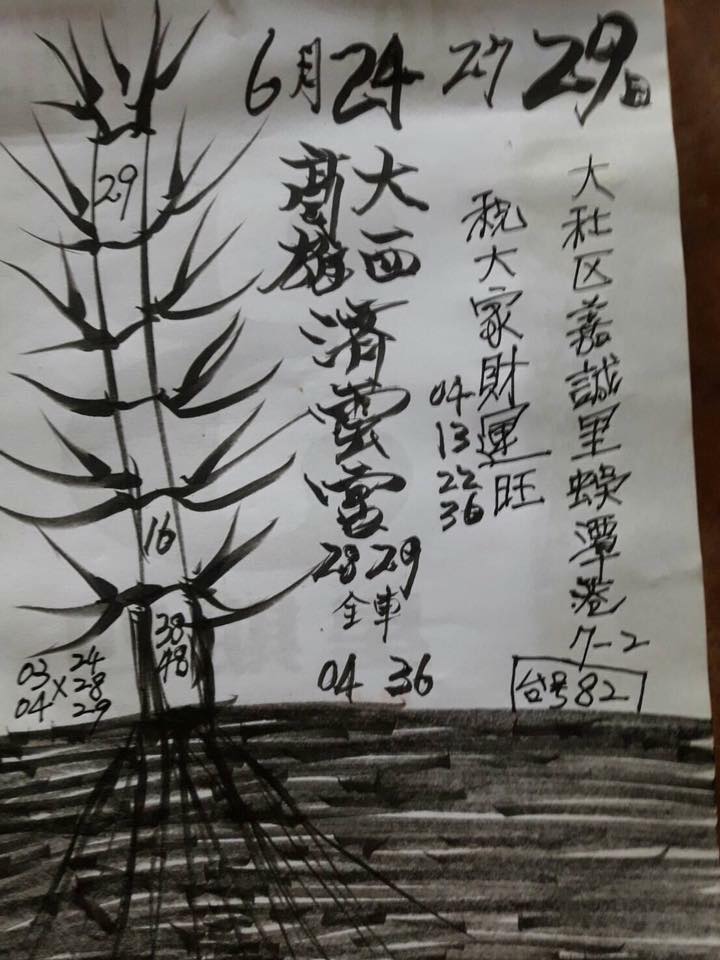 6月24 27 29日
大社区嘉誠里蜈潭巷7-2
台号82
祝大家財運旺
04
13
22
36
大四
高雄
濟雲宮
28 29
全車
04 36
29
16
38
48
03
04
×
24
28
29